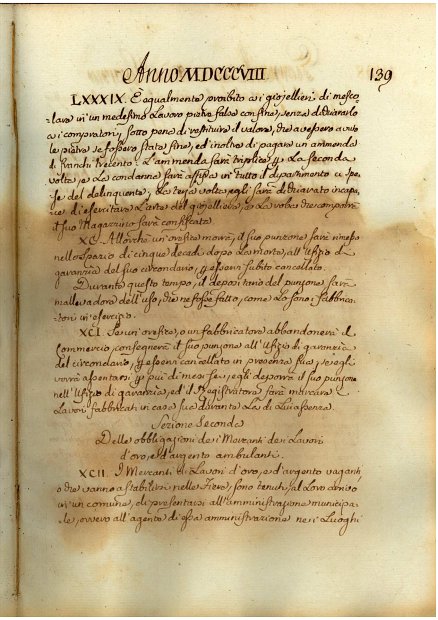 Anno MDCCCVIII 139
LXXXIX. E egualmente proibito a i giojellieri di mesco-
-lare in un medesimo Lavoro pietre false con fine, senza dichiararlo
a i compratori, sotto pena di restituire il valore, che avessero avuto
le pietre se fossero state fine, ed inoltre di pagare un ammenda
di franchi trecento. L'ammenda sarà triplice p. La seconda
volta, e La condanna sarà affissa in tutto il dipartimento a spe-
se del delinquente; La terza volta egli sarà dichiarato incapa-
ce di esercitare L'arte del giojelliere, e La robba che comporrà
il suo Magazzino sarà confiscata.
XC. Allorchè un orefice morrà, il suo punzone sarà rimesso
nello spazio di cinque decadi dopo La morte, all'Ufizio di
garanzia del suo circondario, p. essere subito cancellato.
Durante questo tempo, il depositario del punzone sarà
mallevadore dell'uso, che ne fosse fatto, come Lo sono i fabbrica-
tori in esercizio.
XCI. Se un orefice, o un fabbricatore abbandonerà il
Commercio, consegnerà il suo punzone all'Ufizio di garanzia
del circondario, p. essere cancellato in presenza sua; se egli
vorrà assentarsi p. più di mesi sei, egli deporrà il suo punzone
nell'Ufizio di garanzia, ed il Registratore farà marcare i
Lavori fabbricati in casa sua durante La di Lui assenza.
Sezione Seconda
Delle obbligazioni de i Mercanti de i Lavori
d'oro, e d'argento ambulanti.
XCII. I Mercanti di Lavori d'oro, e d'argento vaganti,
o che vanno a stabilirsi nelle Fiere, sono tenuti, al Loro arrivo
in un comune, di presentarsi all'amministrazione municipa-
le, ovvero all'agente di essa amministrazione ne i Luoghi